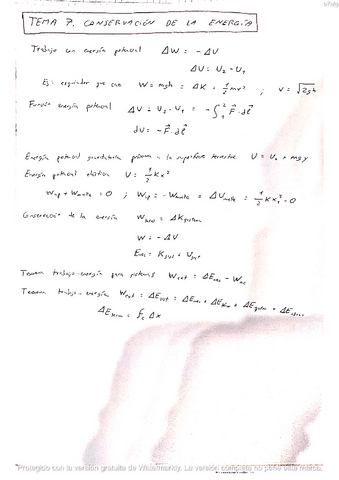 TEMA 7. CONSERVACIÓN DE LA ENERGÍA
Trabajo con energía potencial ΔW = -ΔU
ΔU = U₂ - U₁
Ej: esquiador que cae W = mgh = ΔK = 1/2 mv² ; v = √2gh
Función energía potencial ΔU = U₂ - U₁ = -∫₁² F⃗ · dl⃗
dU = -F⃗ · dl⃗
Energía potencial gravitatoria próxima a la superficie terrestre U = U₀ + mgy
Energía potencial elástica U = 1/2 Kx²
+ = 0 ; = - = ΔU = 1/2 Kx₁² - 0
Conservación de la energía = ΔK
W = -ΔU
= +
Teorema trabajo-energía para sistemas = ΔE -
Teorema trabajo-energía = ΔE = ΔE + ΔE + ΔE + ΔE
ΔE = f Δx
Protegido con la versión gratuita de Watermarkly. La versión completa no pone esta marca.